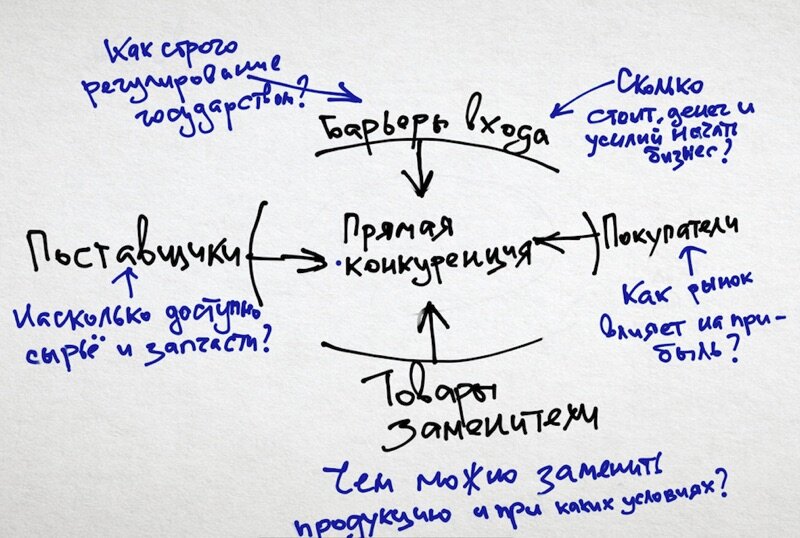 Как строго
регулирование
государством?
Сколько
стоит, денег и
усилий начать
бизнес?
Барьеры входа
Поставщики
Прямая
конкуренция
Покупатели
Насколько доступно
сырьё и запчасти?
Как рынок
влияет на при-
быль?
Товары
заменители
Чем можно заменить
продукцию и при каких условиях?